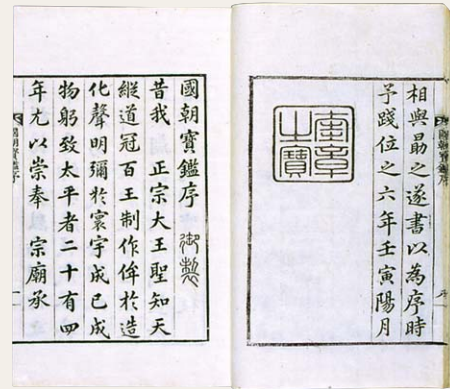 國朝寶鑑序
序
相與勗之遂書以為序時
予踐位之六年壬寅陽月
奎章之寶
國朝寶鑑序 御製
昔我 正宗大王聖知天
縱道冠百王制作侔於造
化聲明彌於寰宇成己成
物躬致太平者二十有四
年尤以崇奉 宗廟承
國朝寶鑑序